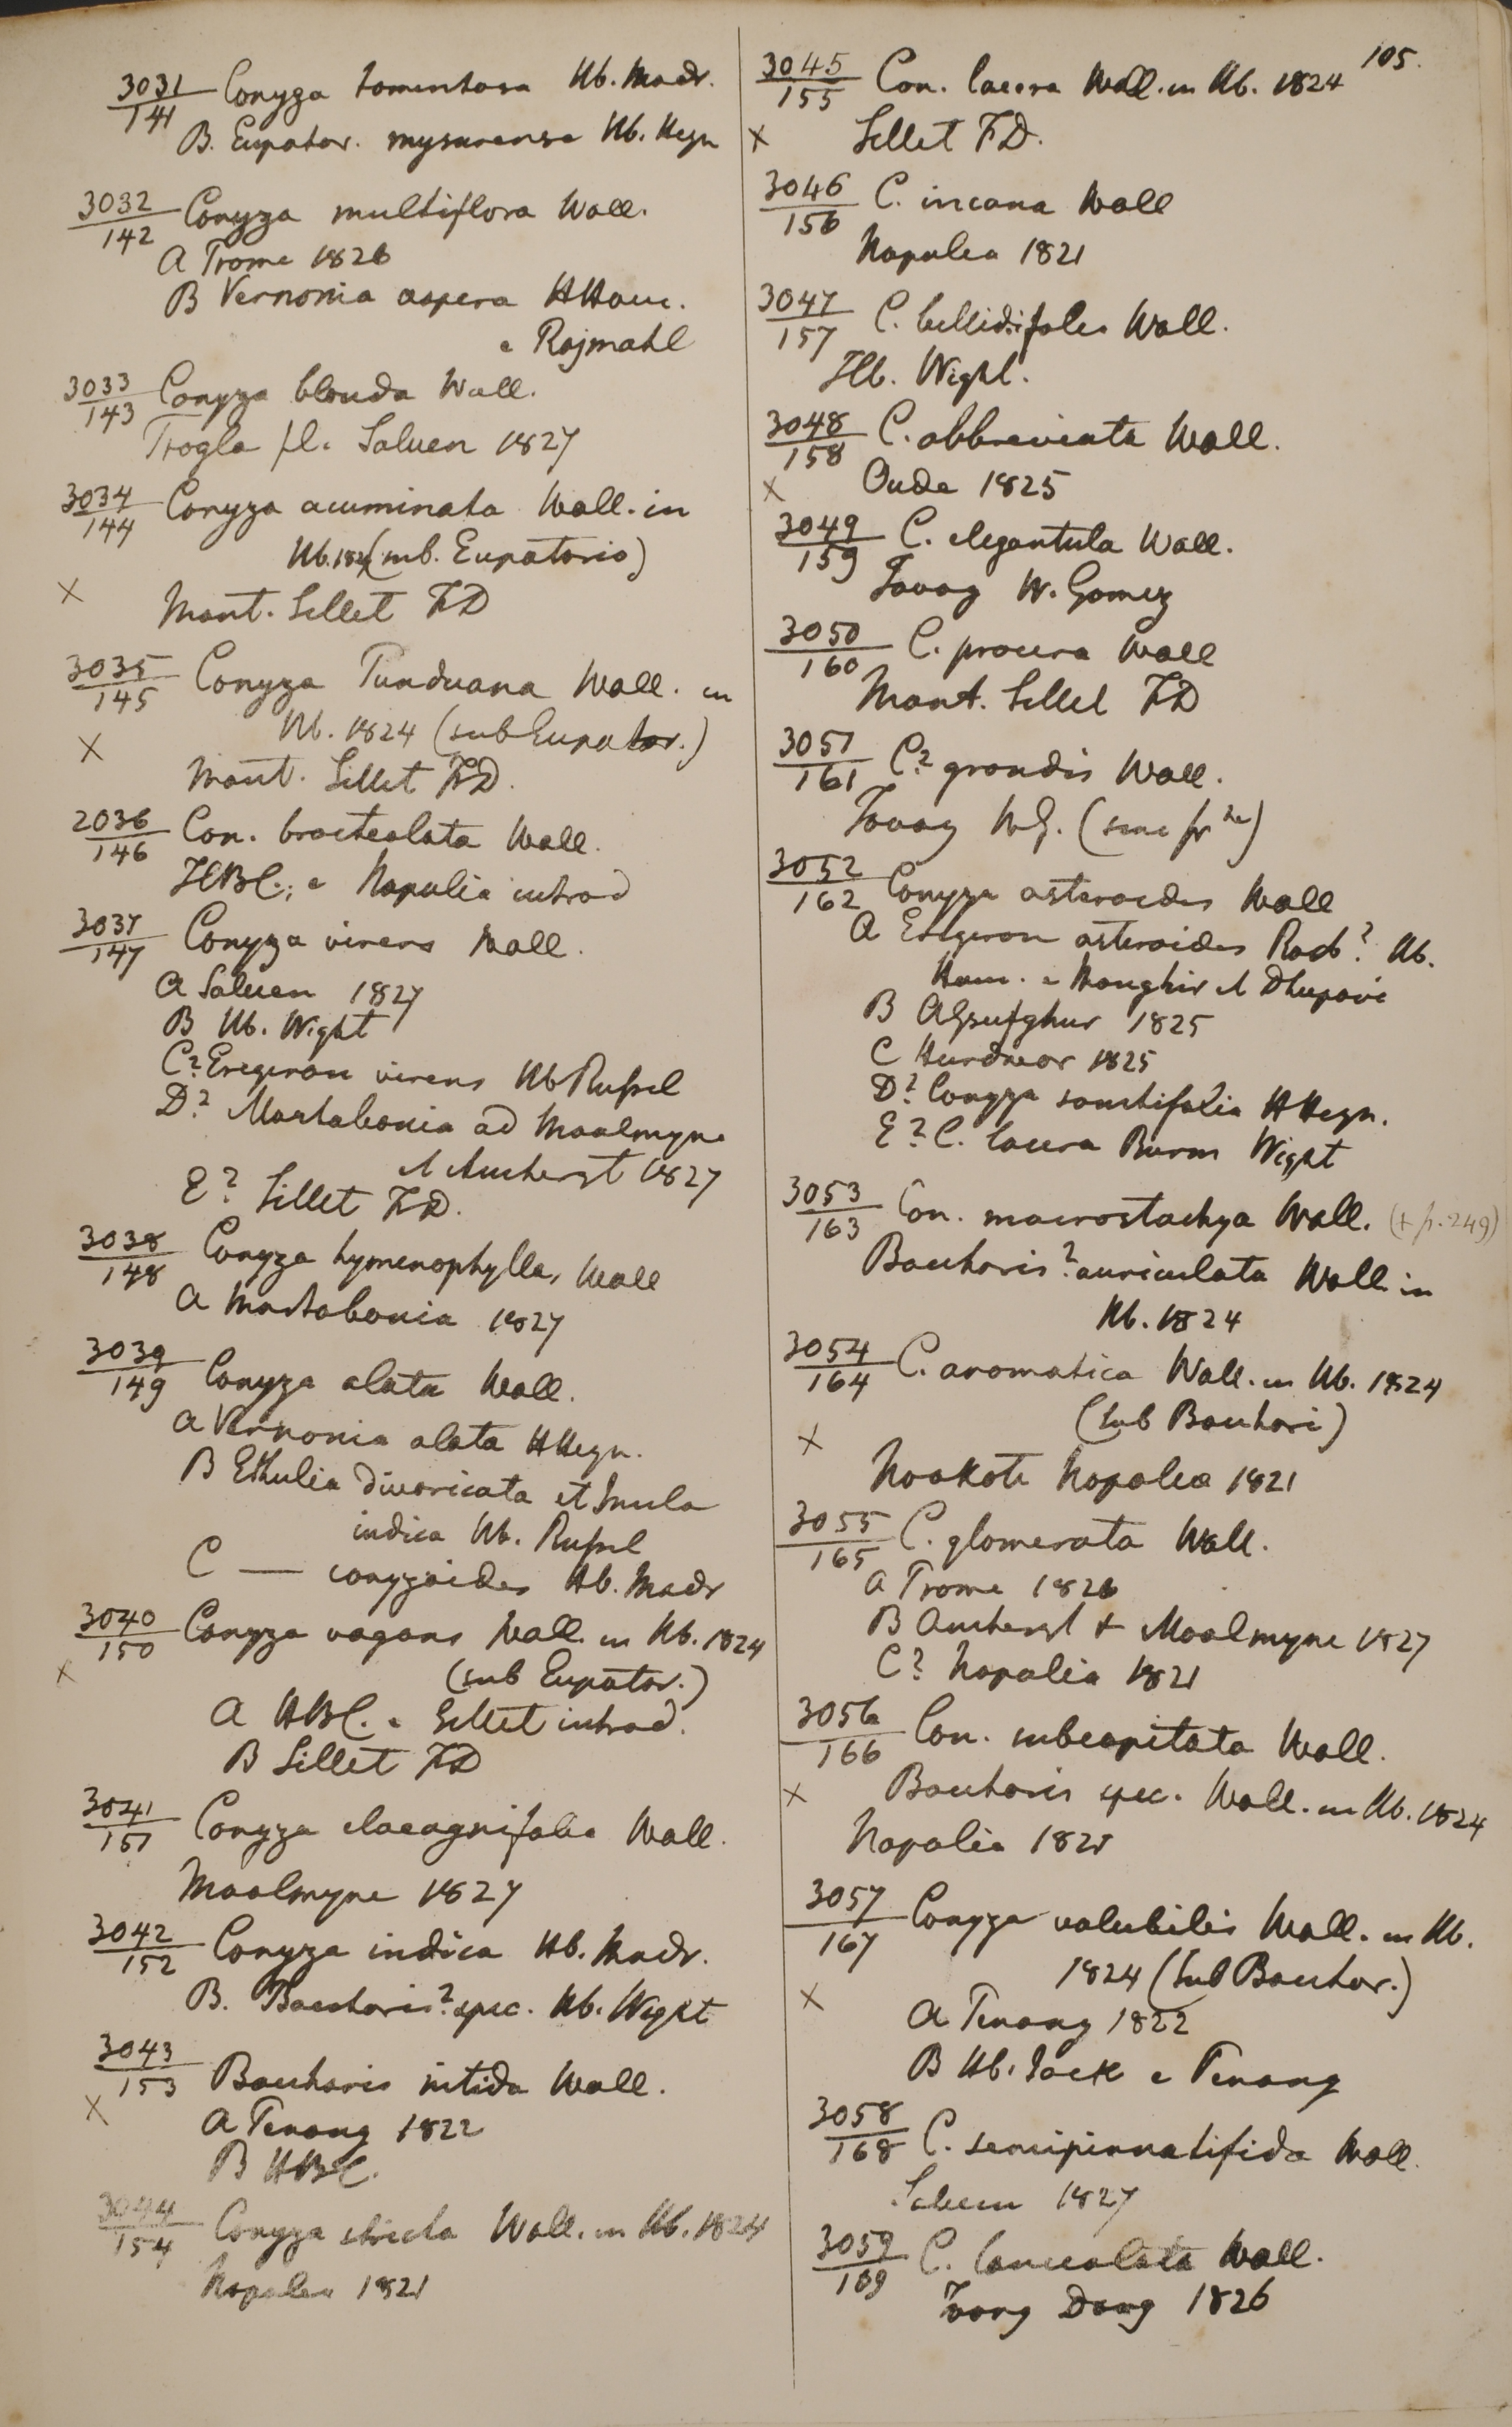 105.
3031/141 Conyza tomentosa Hb. Madr.
B. Eupator. mysurense Hb. Heyn
3032/142 Conyza multiflora Wall.
A Prome 1826
B Vernonia aspera HHam.
e Rajmahl
3033/143 Conyza blanda Wall.
Trogla fl. Saluen 1827
3034/144 Conyza acuminata Wall. in
Hb. 1824 (sub. Eupatorio)
x Mont. Sillet FD
3035/145 Conyza Punduana Wall. in
Hb. 1824 (sub Eupator.)
x Mont. Sillet FD.
2036/146 Con. bracteolata Wall.
HBC.; e Napalia introd
3037/147 Conyza virens Wall.
A Saluen 1827
B Hb. Wight
C? Erigeron virens Hb Russel
D? Martabania ad Moalmyne
et Amherst 1827
E? Sillet FD.
3038/148 Conyza hymenophylla, Wall
A Martabania 1827
3039/149 Conyza alata Wall.
A Vernonia alata HHeyn.
B Ethulia divaricata et Inula
indica Hb. Russel
C — conyzoides Hb. Madr
3040/150 Conyza vagans Wall. in Hb. 1824
x (sub Eupator.)
A HBC. e Sillet introd.
B Sillet FD
3041/151 Conyza elaeagnifolia Wall.
Moalmyne 1827
3042/152 Conyza indica Hb. Madr.
B. Baccharis? spec. Hb. Wight
3043/153 Baccharis nitida Wall.
x A Penang 1822
B HBC.
3044/154 Conyza stricta Wall. in Hb. 1824
Napalea 1821
3045/155 Con. lacera Wall. in Hb. 1824
x Sillet FD.
3046/156 C. incana Wall
Napalea 1821
3047/157 C. bellidifolia Wall.
Hb. Wight.
3048/158 C. abbreviata Wall.
x Oude 1825
3049/159 C. elegantula Wall.
Tavoy W. Gomez
3050/160 C. procera Wall
Mont. Sillet FD
3051/161 C? grandis Wall.
Tavoy W.G. (sine fr)
3052/162 Conyza asteroides Wall
A Erigeron asteroides Roxb? Hb.
Ham. e Monghir et Dhupavi
B 1825
C Hurdwar 1825
D? Conyza HHeyn.
E? C. lacera Burm Wight
3053/163 Con. macrostachya Wall. (+ p. 249)
Baccharis? auriculata Wall in
Hb. 1824
3054/164 C. aromatica Wall. in Hb. 1824
(sub Bacchari)
x Noakote Napalea 1821
3055/165 C. glomerata Wall.
A Prome 1826
B Amherst + Moalmyne 1827
C? Napalia 1821
3056/166 Con. subcapitata Wall.
x Baccharis spec. Wall. in Hb. 1824
Napalia 1821
3057/167 Conyza volubilis Wall. in Hb.
1824 (sub Bacchar.)
x A Penang 1822
B Hb. Jack e Penang
3058/168 C. semipinnatifida Wall.
Saluen 1827
3059/169 C. lanceolata Wall.
Toong Dong 1826